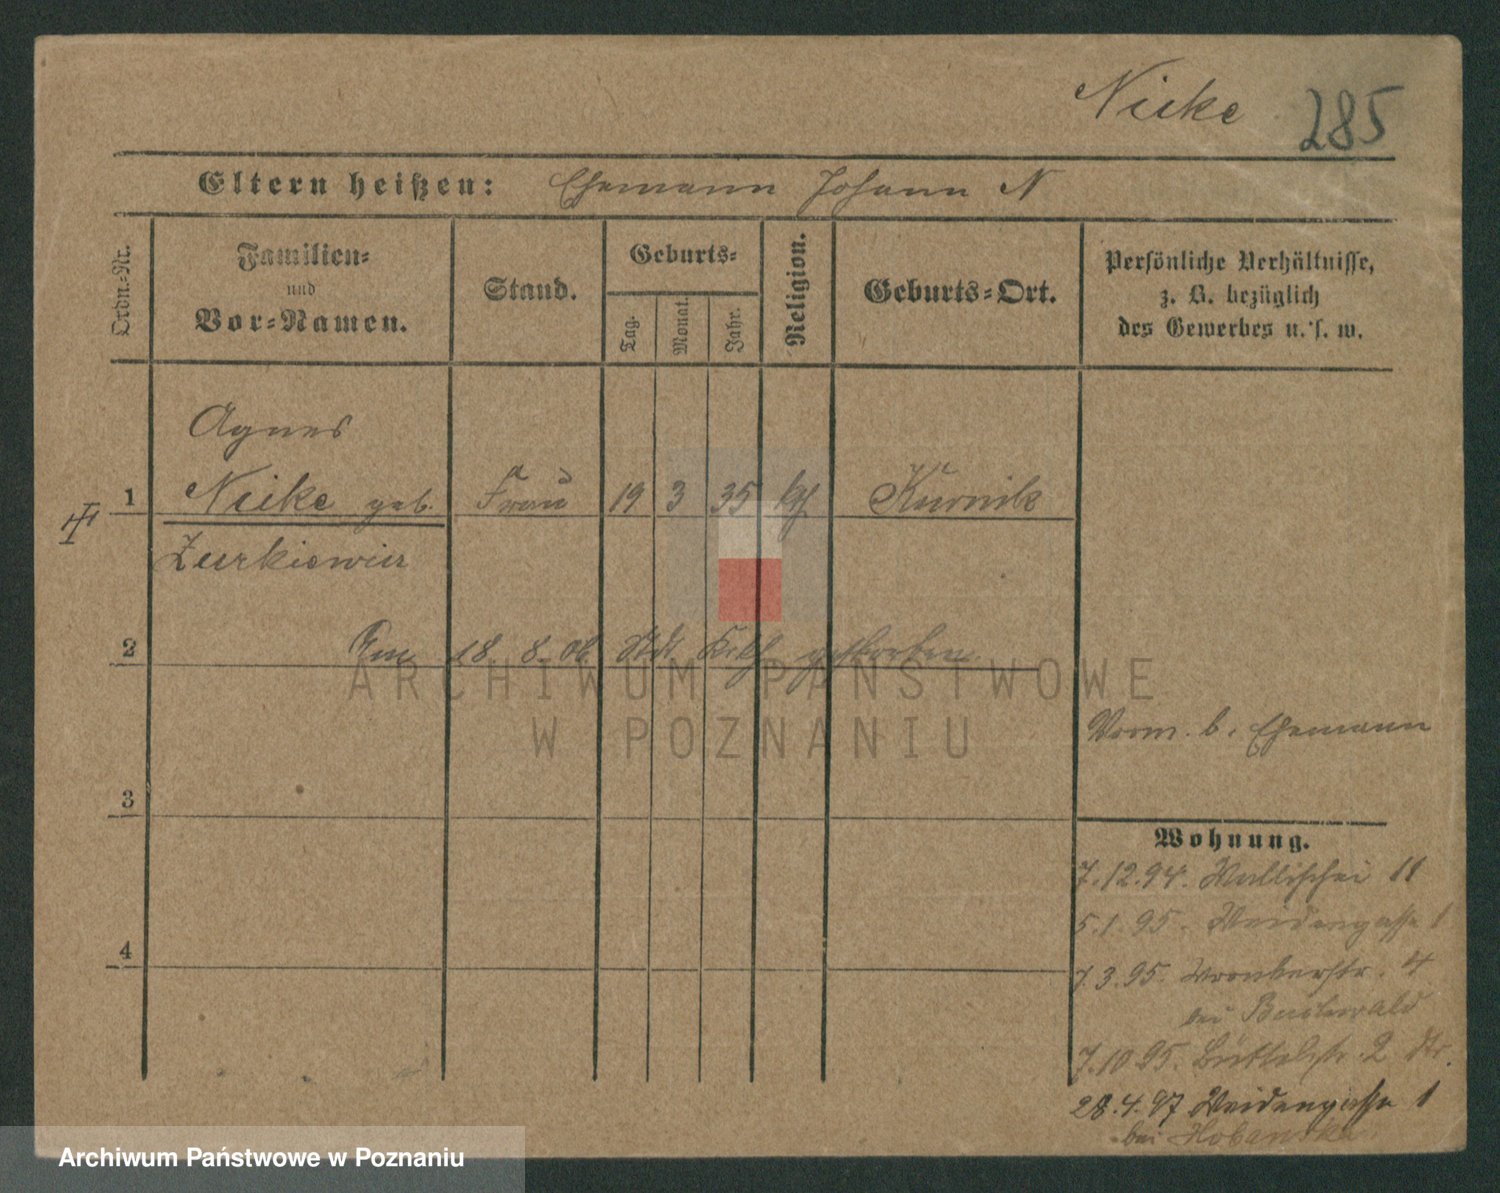 Nieke 285
Eltern heißen: Ehemann Johann N
Ordn.-Nr.
Familien-
und
Vor-Namen.
Stand.
Geburts-
Tag.
Monat.
Jahr.
Religion.
Geburts-Ort.
Persönliche Verhältnisse,
z. B. bezüglich
des Gewerbes u. s. w.
Agnes
1 Nieke geb. Frau 19 3 35 kth Kurnik
Zurkiewicz
2 Am 18. 8. 06 Stdt Krkh gestorben.
Vorm. b. Ehemann
3
Wohnung.
7.12.94. Wallischei 11
5.1.95. Weidengasse 1
4
7.3.95. Wronkerstr. 4
bei Buchwald
7.10.95. Büttelstr. 2
28.4.97 Weidengasse 1
bei
ARCHIWUM PAŃSTWOWE
W POZNANIU
Archiwum Państwowe w Poznaniu